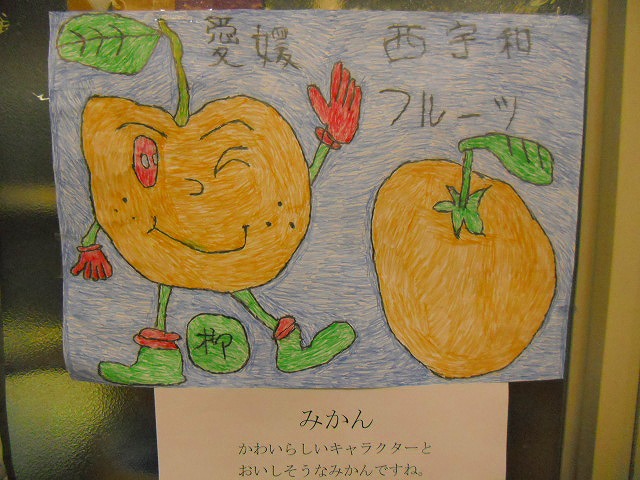 愛媛
西宇和
フルーツ
柳
みかん
かわいらしいキャラクターと
おいしそうなみかんですね。